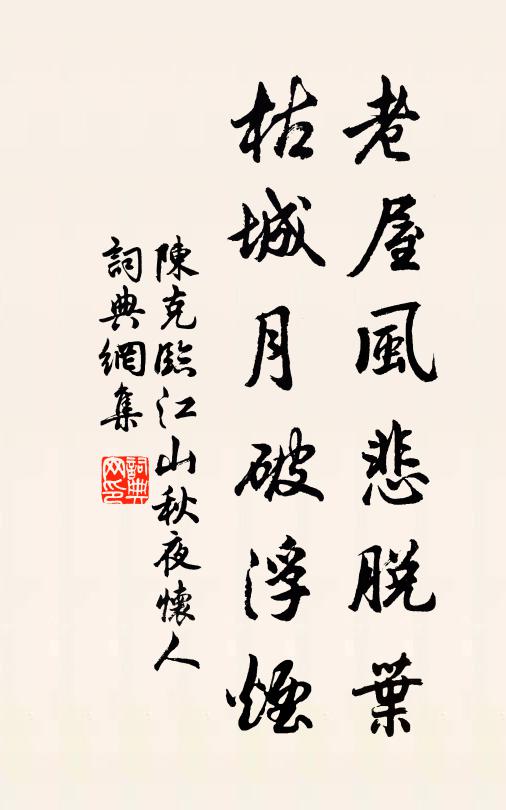 老屋風悲脫葉
枯城月破浮煙
陳克臨江山秋夜懷人
詞典網集
詞典網印